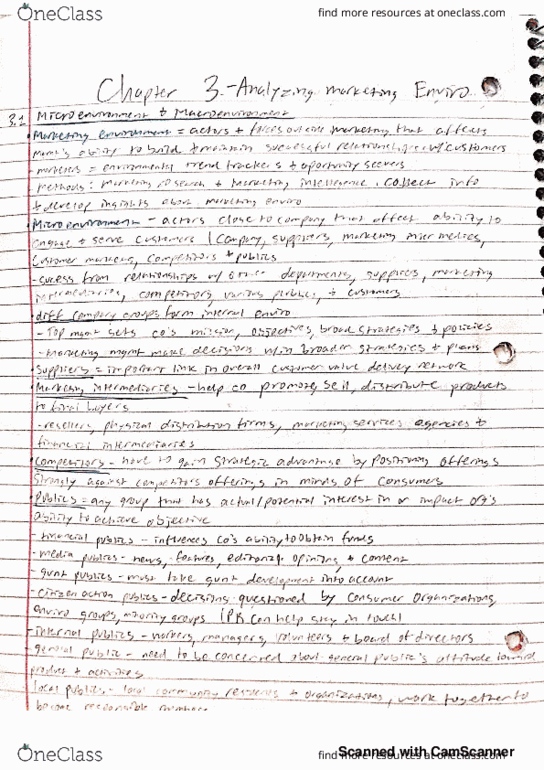 OneClass
find more resources at oneclass.com
Chapter 3.-Analyzing marketing Enviro
3.1 Microenvironment + Macroenvironment
Marketing environment = actors + forces outside marketing that affects
ability to build + maintain successful relationships customers
marketers = environmental trend trackers + oportunity seekers
methods: marketing research + marketing intelligence. collect info
+ develop insights about marketing enviro
Microenvironment - actors close to company that affect ability to
engage + serve customers (company, suppliers, marketing
customer markets, competitors + publics
-sucess from relationships w/ other departments, suppliers, marketing
intermediaries, competitors, various publics, + customers
diff company groups form internal enviro
-Top mgmt sets co's mission, objectives, broad strategies + policies
-marketing mgmt make decisions w/in broader strategies + plans
Suppliers = important link in overall customer value delivery network
Marketing intermediaries - help co promote, sell, distribute products
to final buyers
-resellers, physical distribution firms, marketing services agencies +
financial intermediaries
Competitors - have to gain strategic advantage by positioning offerings
strongly against competitors offerings in minds of consumers
Publics = any group that has actual/potential interest in or impact org's
ability to achieve objective
-financial publics - influences co's ability to obtain funds
-media publics - news, features, editorial opinions, + content
-gvmt publics - must take gvmt development into account
-citizen action publics - decisions questioned by consumer organizations,
enviro groups, minority groups (PR can help stay in touch)
-internal publics - workers, managers, volunteers + board of directors
-general public - need to be concerned about general public's attitude toward
product + activities
local publics - local community residents + organizations, work together to
become responsible members
OneClass
find more resources at oneclass.com
Scanned with CamScanner